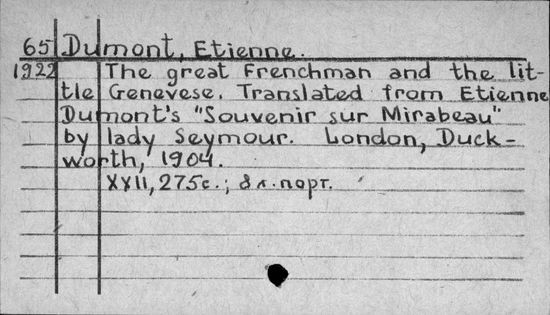 65 Dumont, Etienne.
1922 The great Frenchman and the lit-
tle Genevese. Translated from Etienne
Dumont's "Souvenir sur Mirabeau"
by lady Seymour. London, Duck-
worth, 1904.
XXII, 275с.; 8 л. порт.